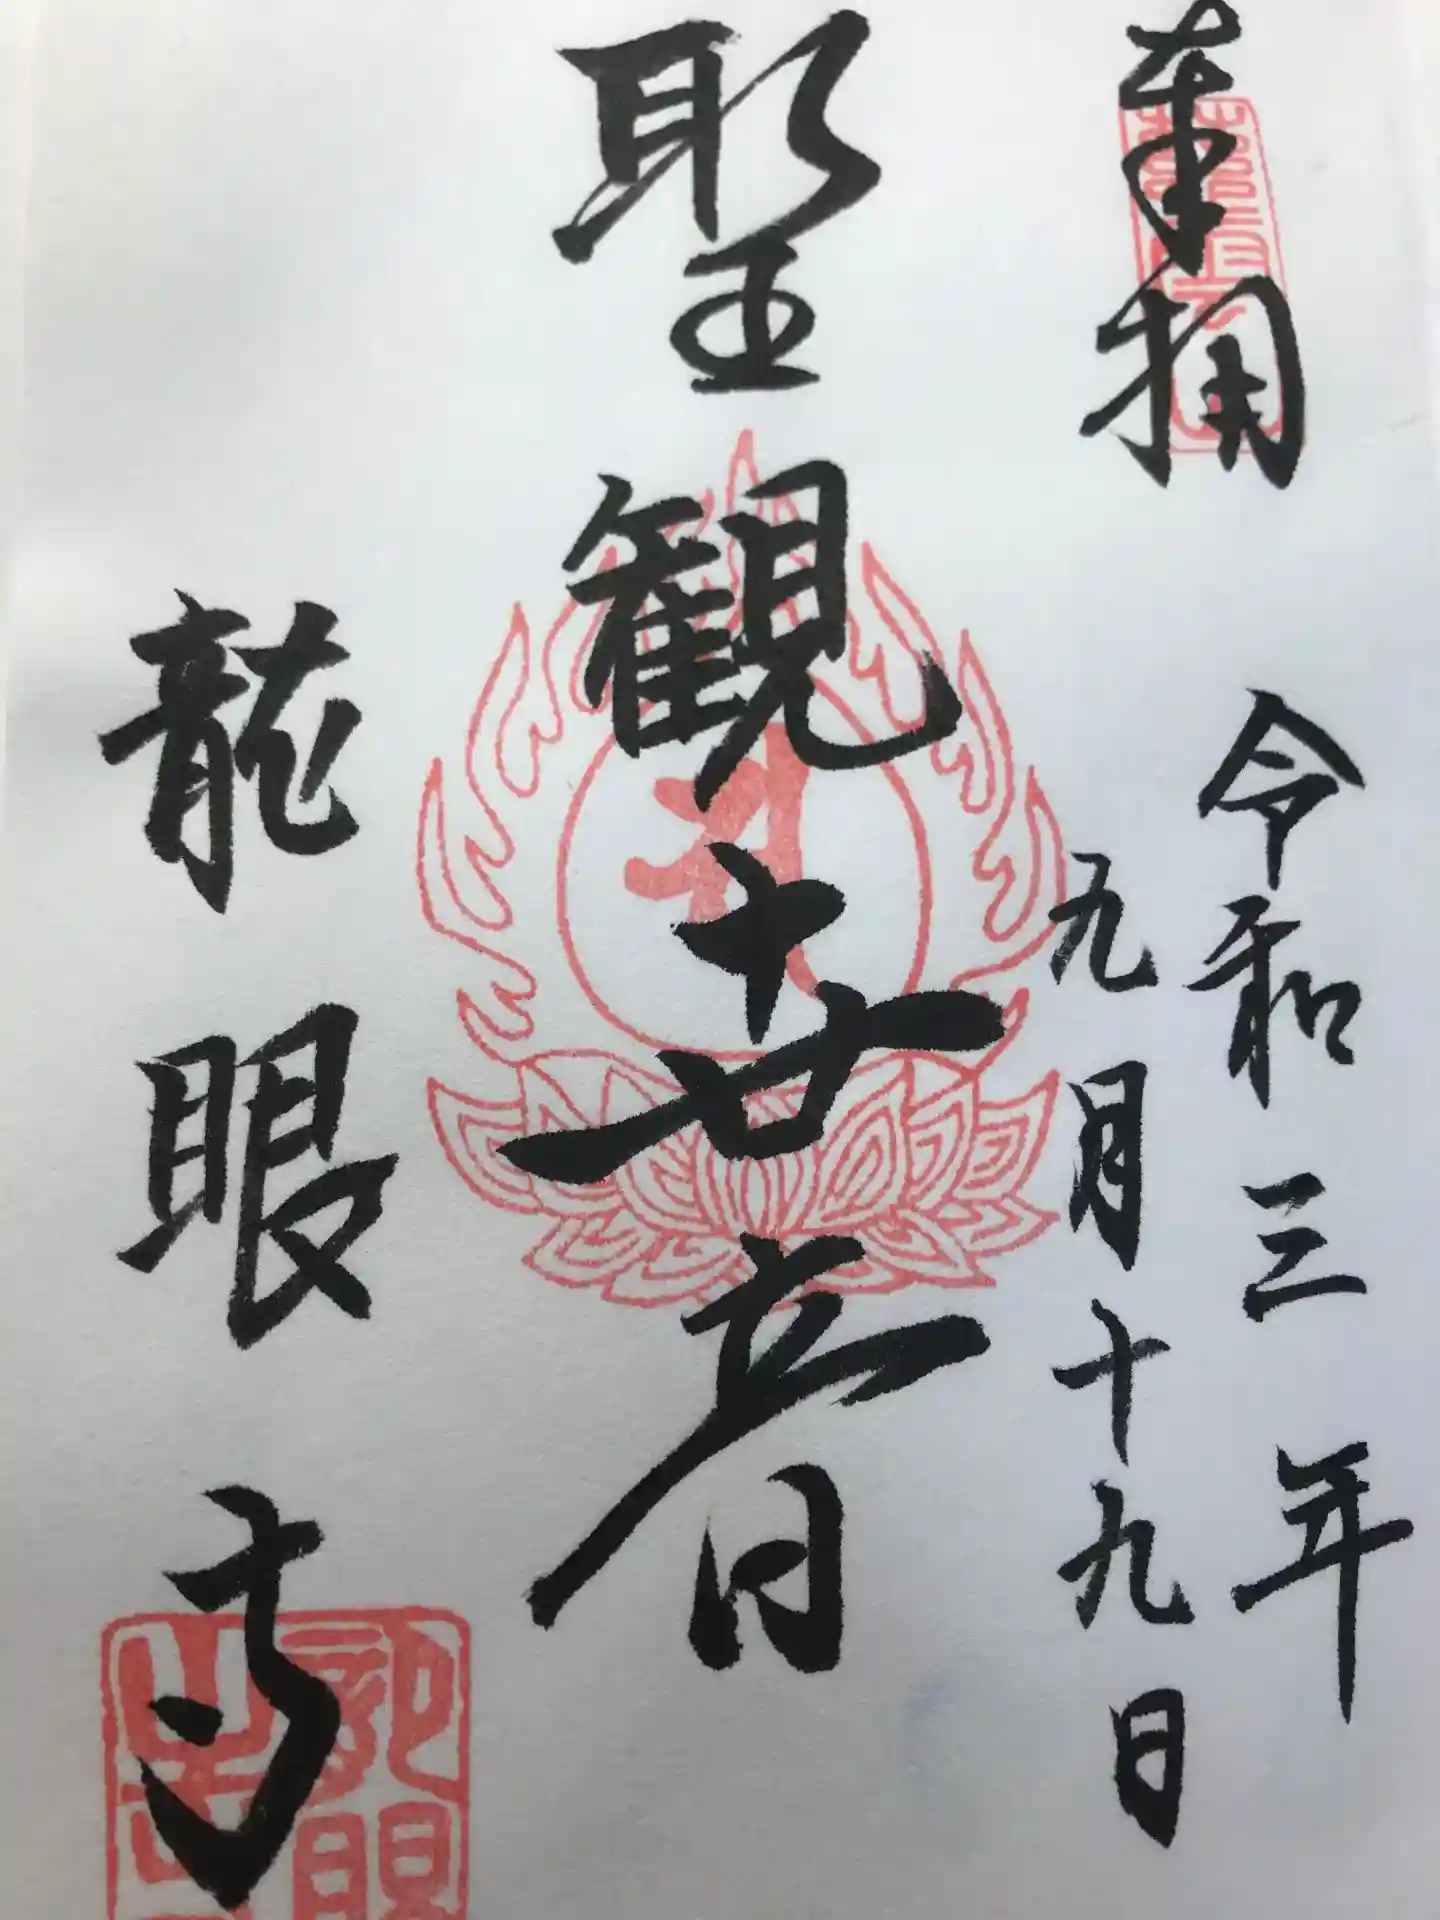 奉拝
令和三年
九月十九日
聖観世音
龍眼寺